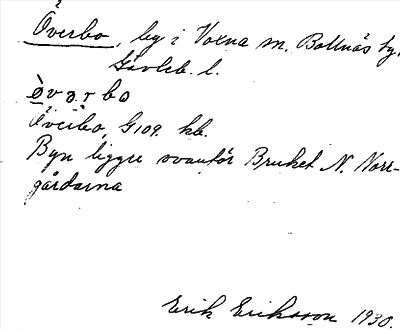 Överbo, by i Voxna sn. Bollnäs tg.
Gävleb. l.
ö̀və.rbo
Överbo, G109. kb.
Byn ligger ovanför Bruket N. Norr-
gårdarna
Erik Eriksson 1930.